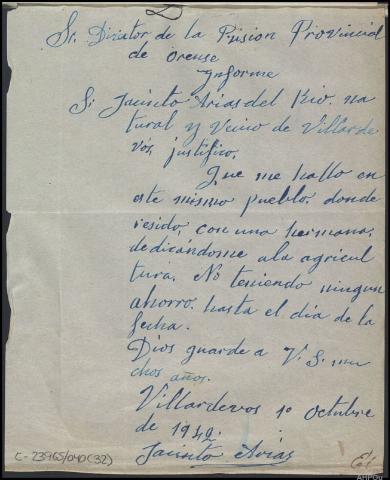 Sr. Director de la Prision Provincial
de Orense
Informe
Si Jacinto Arias del Rio. na
tural y Vecino de Villarde
vós, justifico.
Que me hallo en
este mismo pueblo, donde
resido, con una hermana,
dedicándome a la agricul
tura. No teniendo ningun
ahorro. hasta el dia de la
fecha.
Dios guarde a V. S. mu
chos años.
Villardevos 1º Octubre
de 1940.
Jacinto Arias
C-23965/040(32)
AHPOu